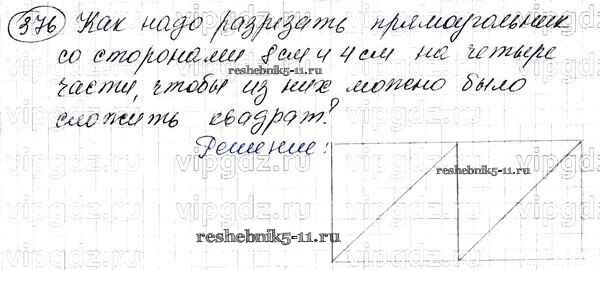 376 Как надо разрезать прямоугольник
со сторонами 8 см и 4 см на четыре
reshebnik5-11.ru
части, чтобы из них можно было
сложить квадрат?
vipgdz.ru vipgdz.ru vipgdz.ru
Решение:
reshebnik5-11.ru
reshebnik5-11.ru
vipgdz.ru